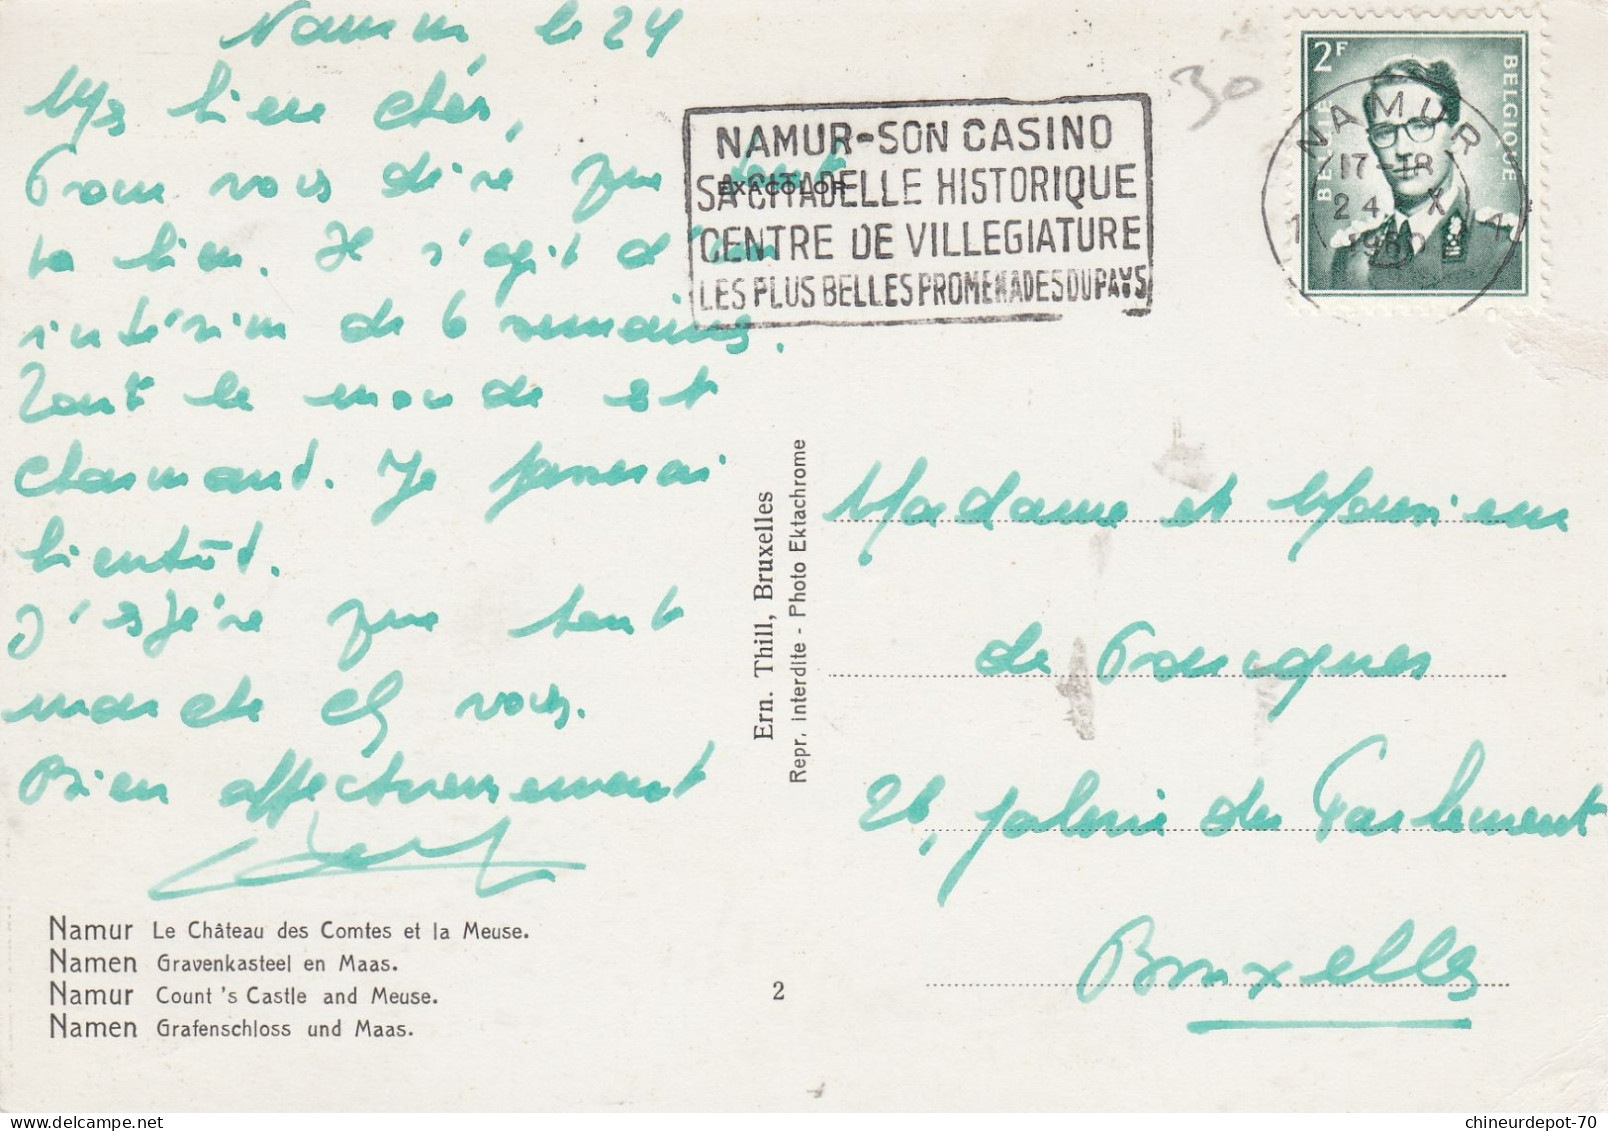 Namur, le 24
Mes bien chers,
Pour vous dire que tout
va bien. Il s'agit d'un
intérim de 6 semaines.
Tout le monde est
charmant. Je passerai
bientôt.
J'espère que tout
marche chez vous.
Bien affectueusement
NAMUR-SON CASINO
SA CITADELLE HISTORIQUE
CENTRE DE VILLEGIATURE
LES PLUS BELLES PROMENADES DU PAYS
EXACOLOR
30
2F
BELGIE
BELGIQUE
NAMUR
17-18
24 X
1960
1 1
Ern. Thill, Bruxelles
Repr. Interdite - Photo Ektachrome
Madame et Monsieur
de
28, galerie du Parlement
Bruxelles
Namur Le Château des Comtes et la Meuse.
Namen Gravenkasteel en Maas.
Namur Count 's Castle and Meuse.
Namen Grafenschloss und Maas.
2
chineurdepot-70